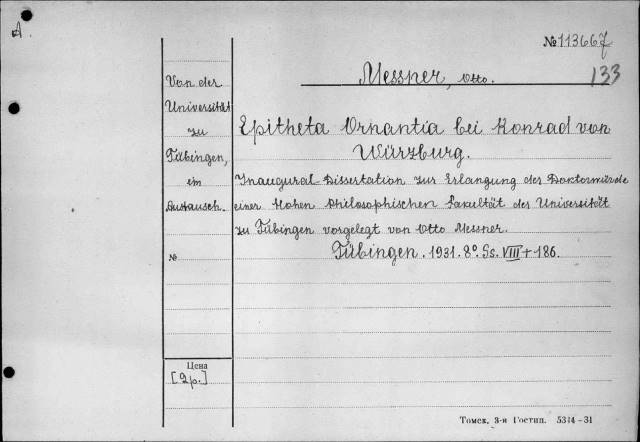 A.
№ 113667
133
Messner, Otto.
Von der
Universität
zu
Tübingen,
im
Austausch.
Epitheta Ornantia bei Konrad von
Würzburg.
Inaugural-Dissertation zur Erlangung der Doktorwürde
einer Hohen Philosophischen Fakultät der Universität
zu Tübingen vorgelegt von Otto Messner.
Tübingen. 1931. 8°. Ss. VIII + 186.
№
Цена
[2р.]
Томск, 3-я Гостип. 5314-31